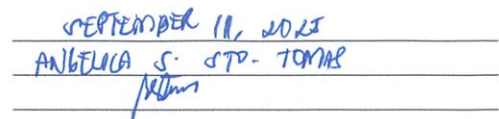 SEPTEMBER 11, 2025
ANGELICA S. STO. TOMAS